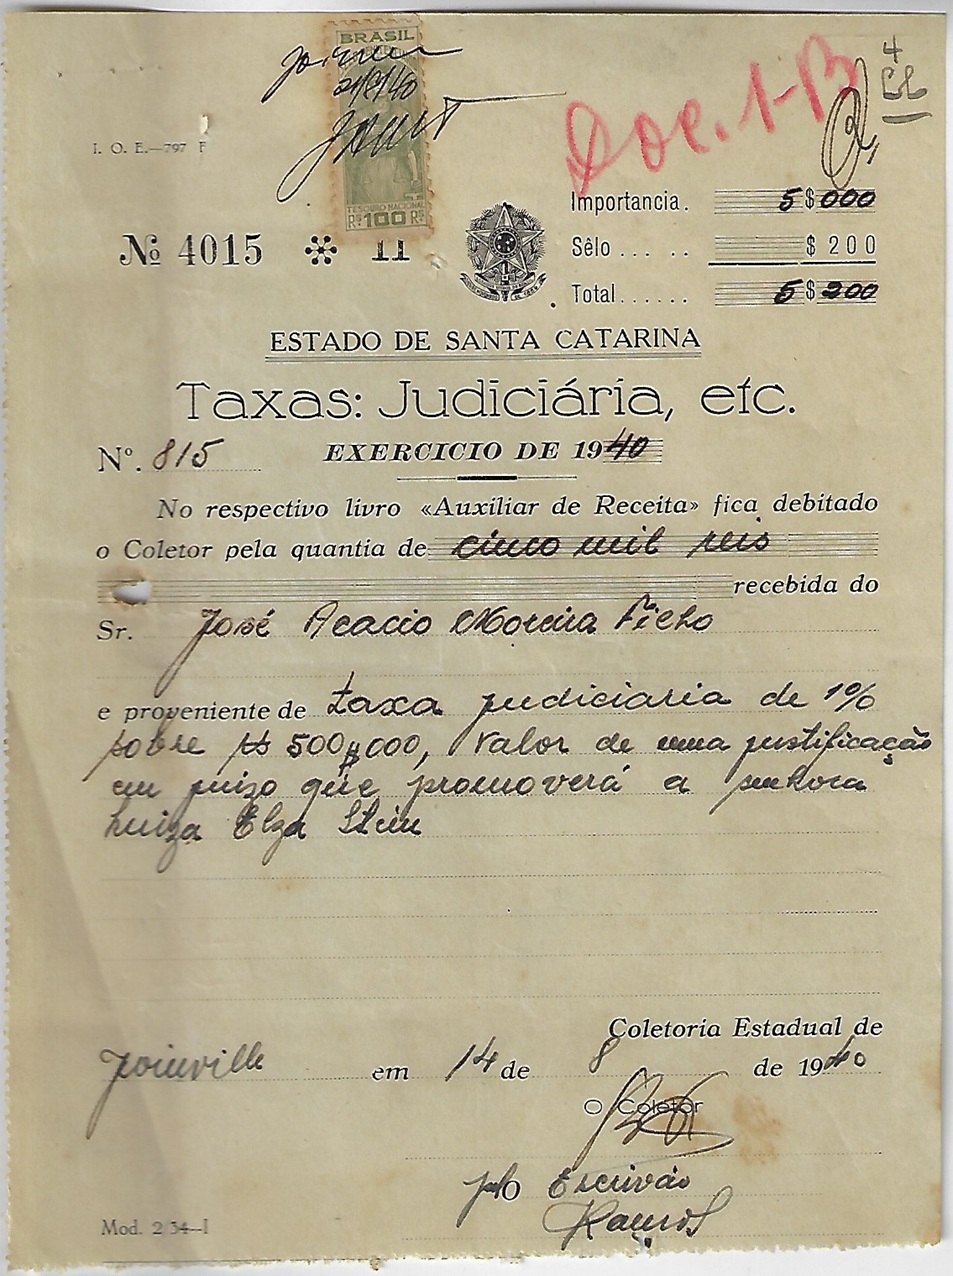 BRASIL
TESOURO NACIONAL
RS 100 RS
Joinville
21/8/40
Doc. 1-B
4
I. O. E.—797 F
Importancia. 5 $ 000
Nº 4015 11
Sêlo ... $ 200
Total ...... 5 $ 200
ESTADO DE SANTA CATARINA
Taxas: Judiciária, etc.
Nº. 815 EXERCICIO DE 1940
No respectivo livro «Auxiliar de Receita» fica debitado
o Coletor pela quantia de cinco mil reis
recebida do
Sr. José Acacio Moreira Filho
e proveniente de taxa judiciaria de 1%
sobre Rs 500$000, valor de uma justificação
em juizo que promoverá a senhora
Luiza Elza Stein
Coletoria Estadual de
Joinville em 14 de 8 de 1940
O Coletor
O Escrivão
Ramos
Mod. 2 34—I